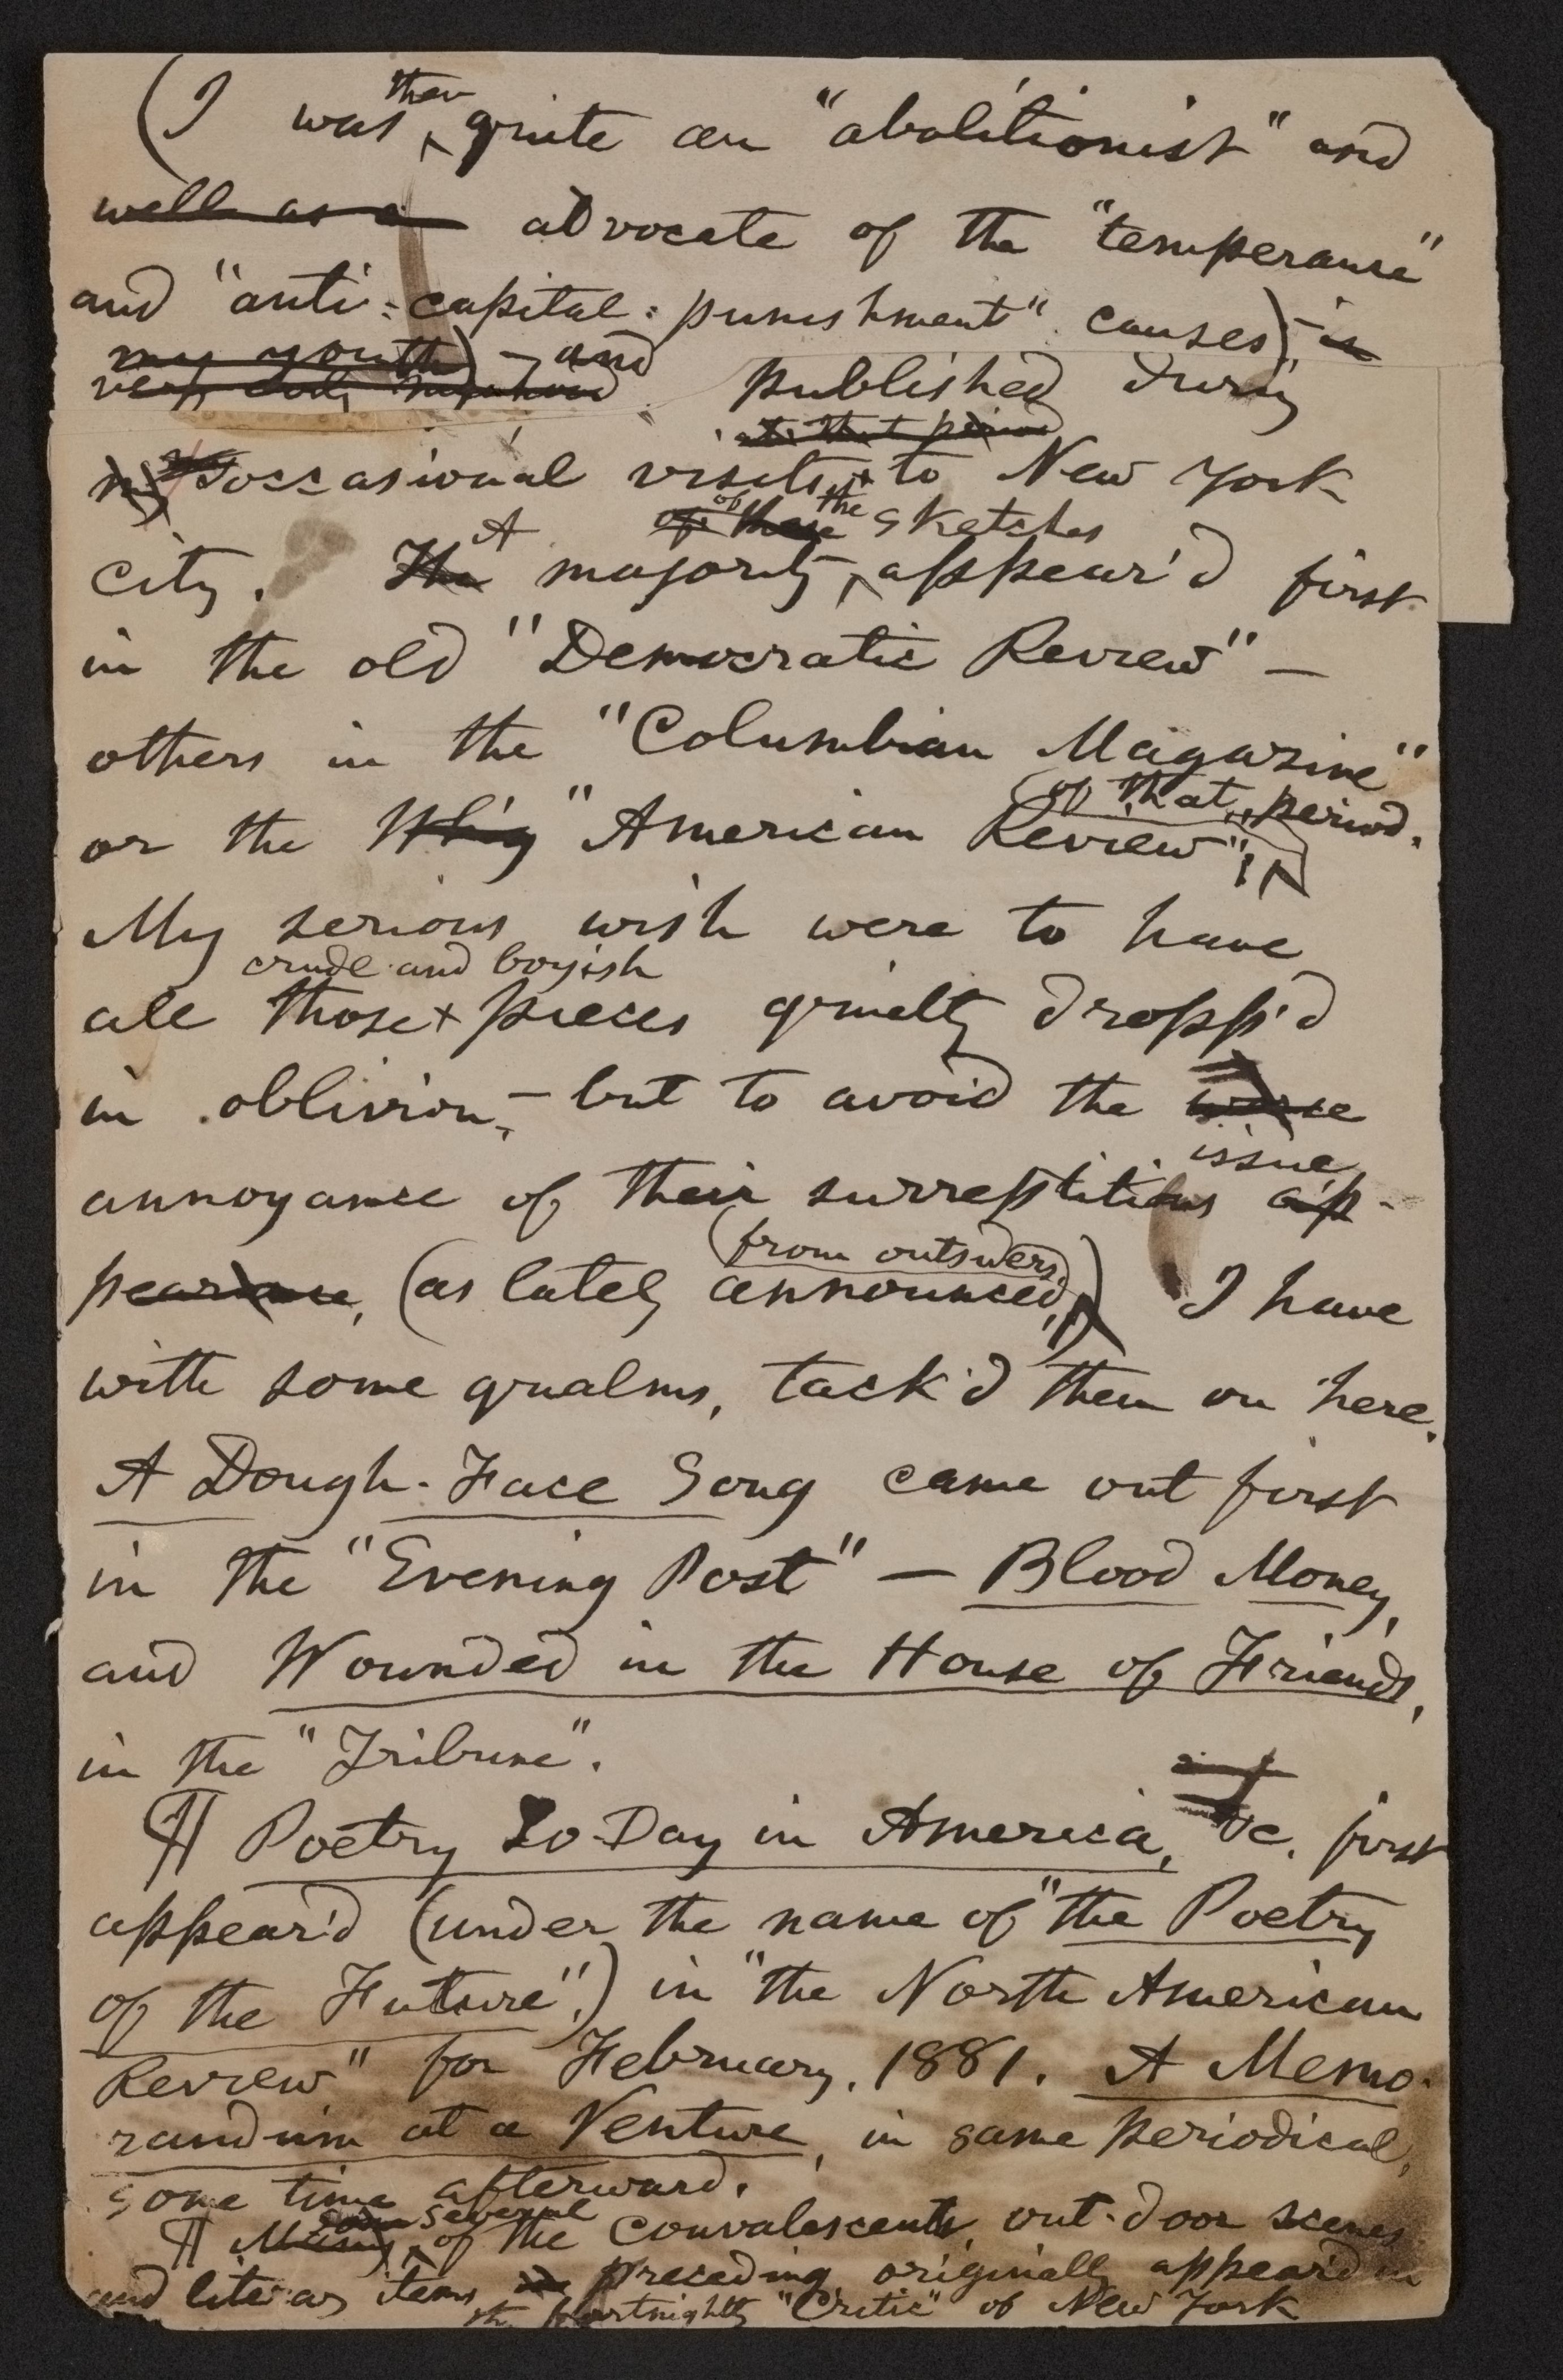 then
(I was ‸ quite an "abolitionist" and
well as a advocate of the "temperance"
and "anti-capital-punishment" causes)— in
my youth) — and
published during
at that period
my occasional visits to New York
A of these of the sketches
city. The majority ‸ appear'd first
in the old "Democratic Review" —
others in the "Columbian Magazine"
(of that period.
or the Whig "American Review";
My serious wish were to have
crude and boyish
all those + pieces quietly dropp'd
in oblivion, — but to avoid the worse
issue,
annoyance of their surreptitious ap-
(from outsiders,)
pearance, (as lately announced,) I have
with some qualms, tack'd them on here.
A Dough-Face Song came out first
in the "Evening Post" — Blood Money,
and Wounded in the House of Friends,
in the "Tribune".
¶ Poetry To-Day in America, &c. first
appear'd (under the name of "the Poetry
of the Future",) in "the North American
Review" for February, 1881. A Memo-
randum at a Venture, in same periodical,
some time afterward.
some several
¶ Many ‸ of the convalescent out-door scenes
and literary items preceding originally appear'd in
the fortnightly "Critic" of New York